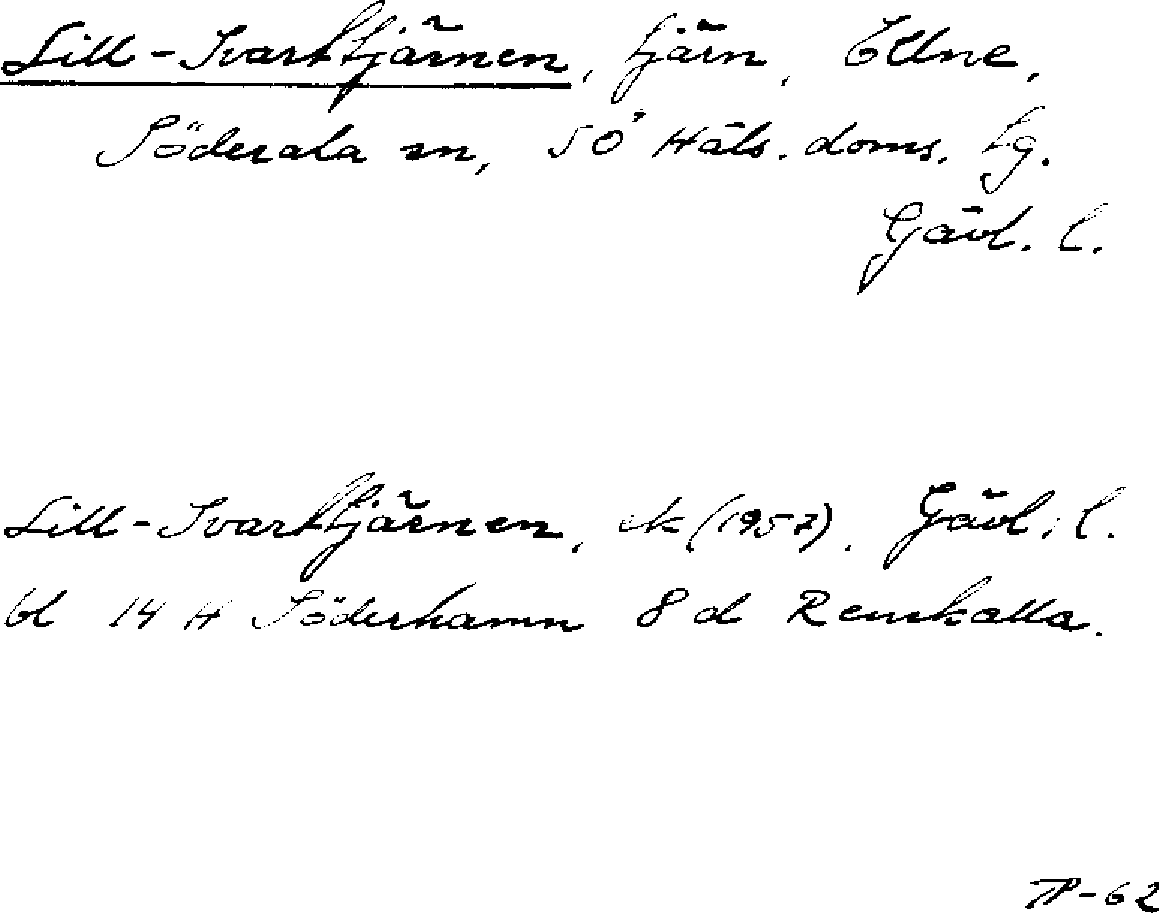 Lill-Svarttjärnen, tjärn, Ellne,
Söderala sn, SÖ Häls. doms. tg.
Gävl. l.
Lill-Svarttjärnen, ek (1957). Gävl. l.
bl 14 H Söderhamn 8 d Remskalla.
TP-62